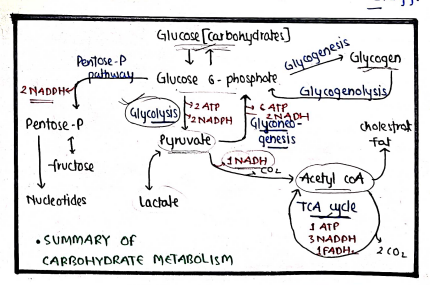 Glucose [carbohydrates]
Pentose-P
pathway
Glycogenesis
Glycogen
2 NADPH
Glucose 6-phosphate
Glycogenolysis
Glycolysis
2 ATP
2 NADPH
6 ATP
2 NADH
Glyconeo-
genesis
Pentose-P
cholestrol
fat
Pyruvate
fructose
1 NADH
CO2
Acetyl CoA
Nucleotides
Lactate
TCA cycle
1 ATP
3 NADPH
1 FADH2
2 CO2
• SUMMARY OF
CARBOHYDRATE METABOLISM